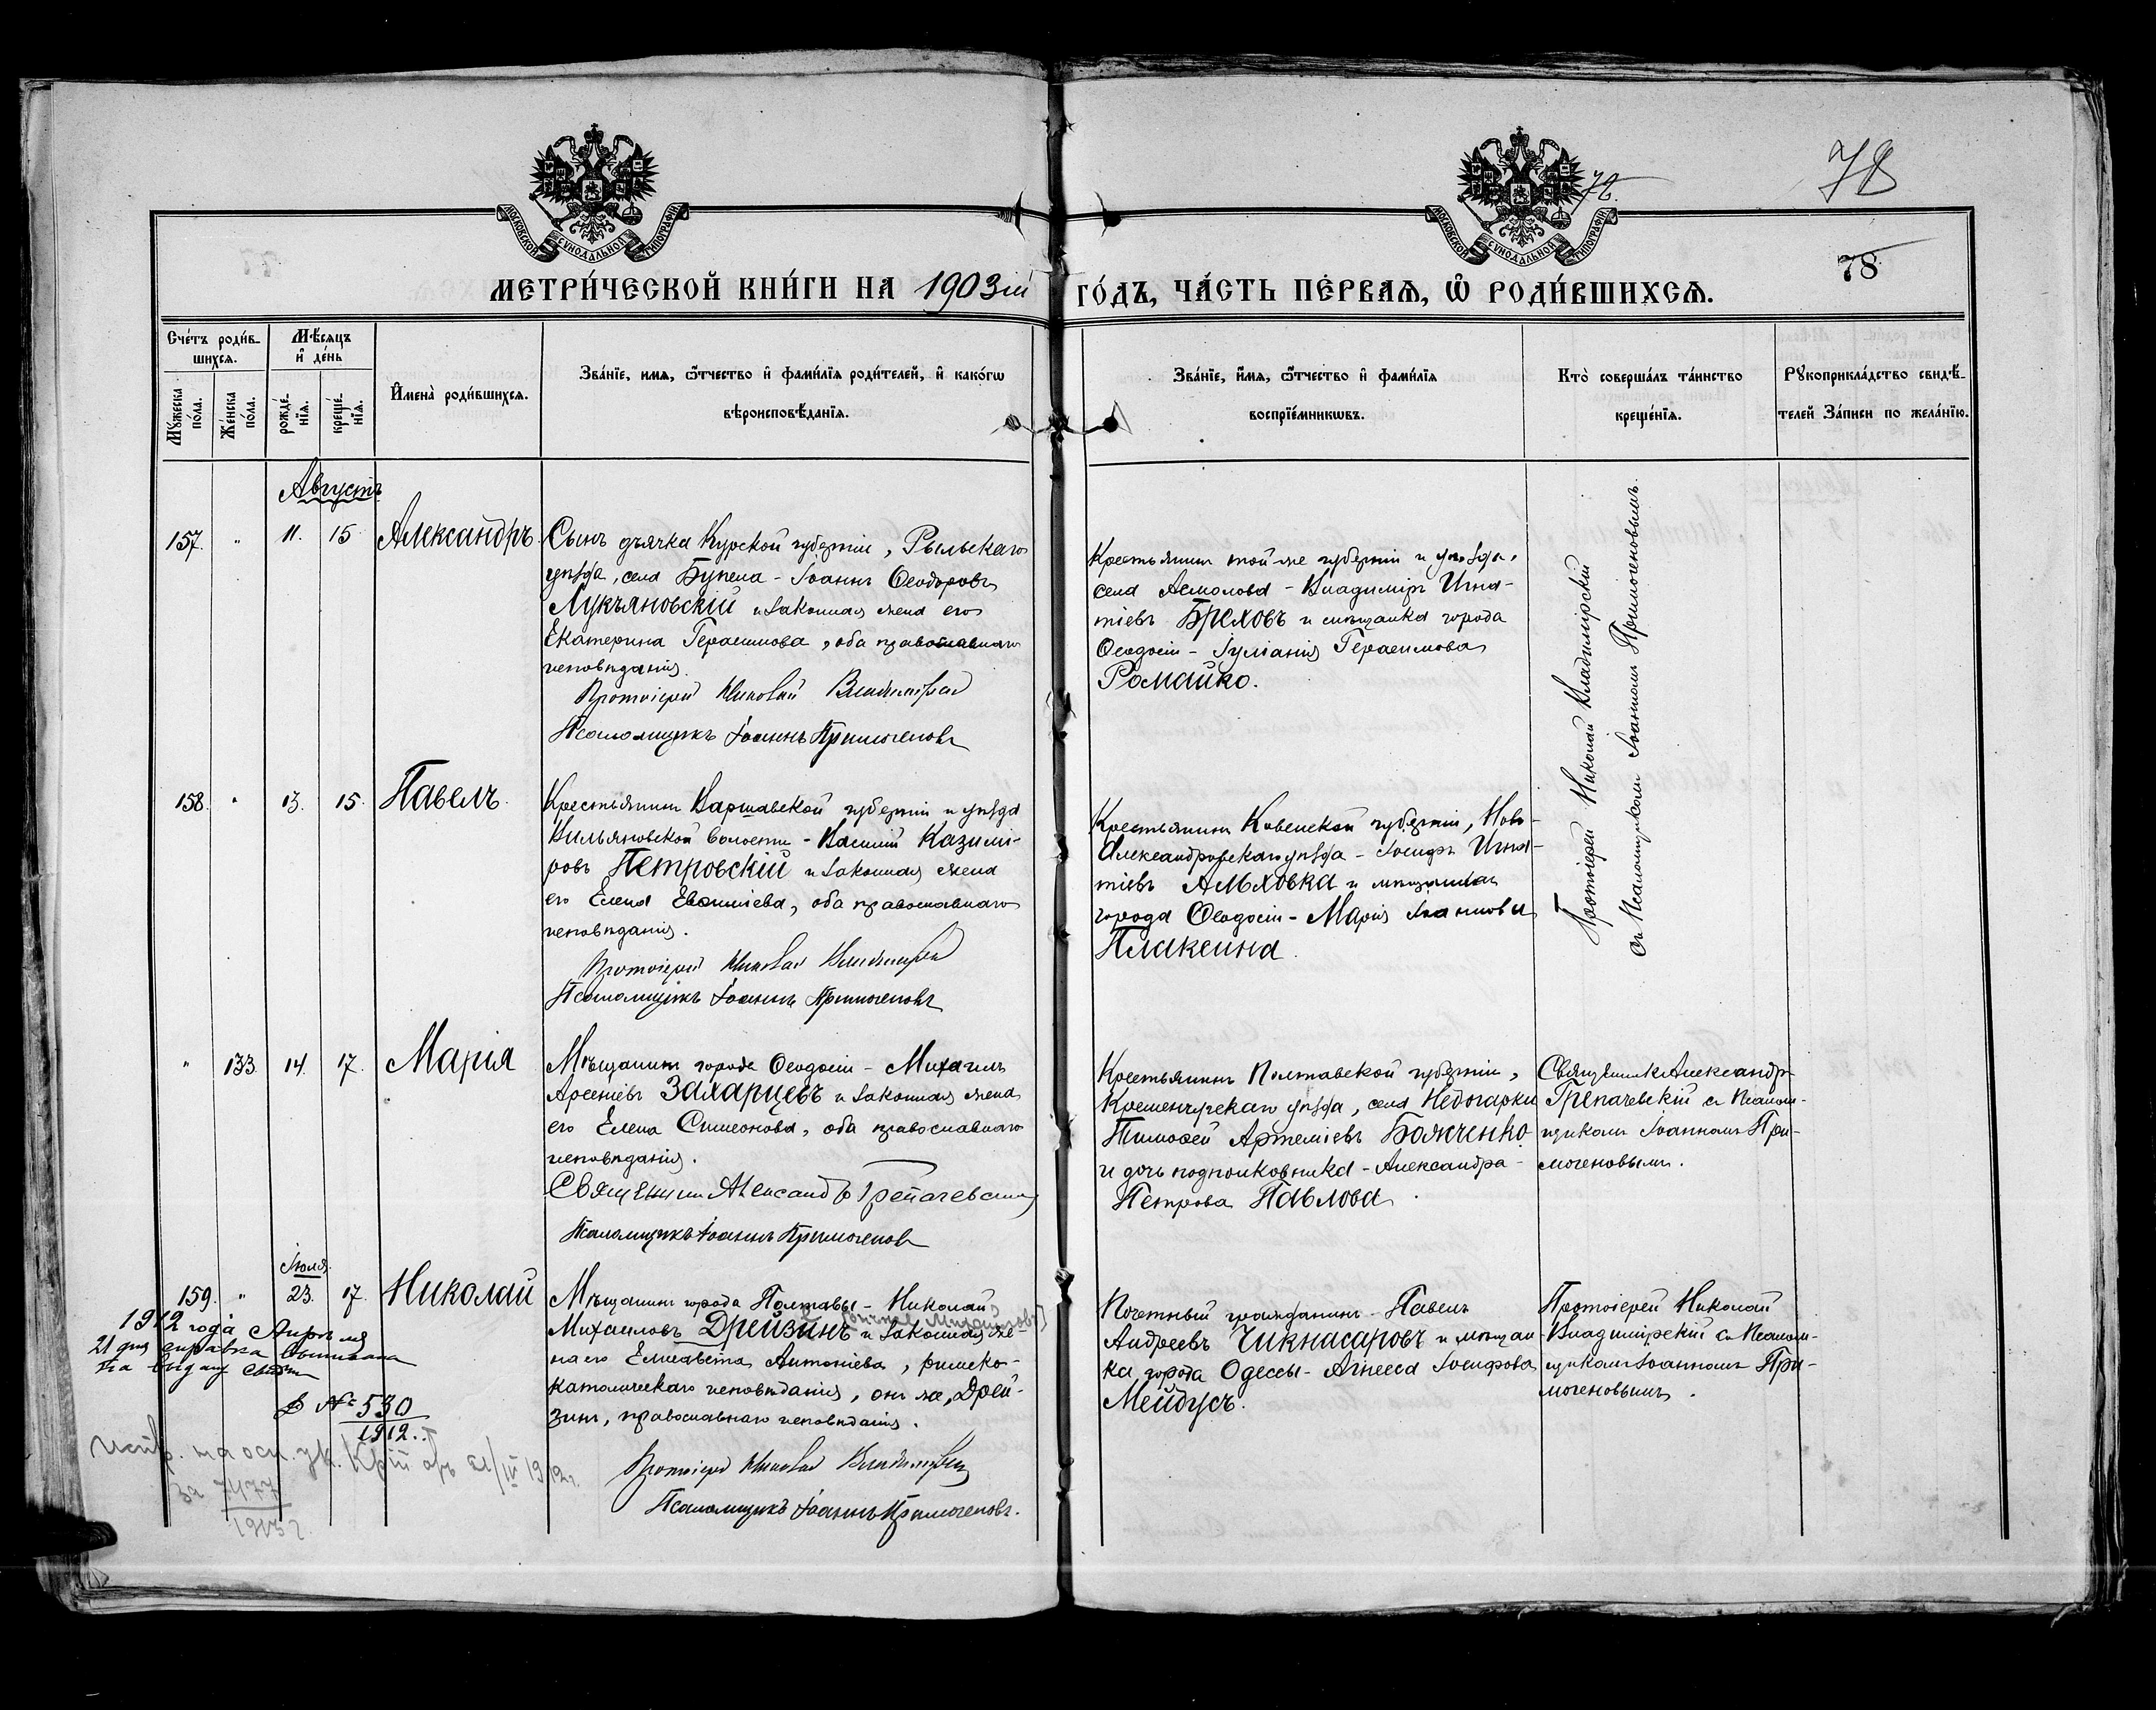 МОСКОВСКОЙ СѴНОДАЛЬНОЙ ТИПОГРАФІИ
МОСКОВСКОЙ СѴНОДАЛЬНОЙ ТИПОГРАФІИ
72.
78
78
МЕТРИ́ЧЕСКОЙ КНИ́ГИ НА 1903ій ГО́ДЪ, ЧА́СТЬ ПЕ́РВАѦ, Ѡ҆ РОДИ́ВШИХСѦ.
Сче́тъ роди́в-
шихсѧ.
Мꙋ́жеска по́ла.
Же́нска по́ла.
Мѣ́сѧцъ
и҆ де́нь
рожде́-
нїѧ.
креще́-
нїѧ.
И҆мена̀ роди́вшихсѧ.
Зва́нїе, имѧ, ѻ҆́тчество и҆ фами́лїѧ роди́телей, и҆ како́гѡ
вѣроисповѣ́данїѧ.
Зва́нїе, и҆́мѧ, ѻ҆́тчество и҆ фами́лїѧ
воспрїе́мникѡвъ.
Кто̀ соверша́лъ та́инство
креще́нїѧ.
Рꙋкоприкла́дство свидѣ́-
телей За́писи по жела́нїю.
Августъ
157. " 11. 15 Александръ
Сынъ дьячка Курской губерніи, Рыльскаго
уѣзда, села Бупела - Іоаннъ Ѳеодоровъ
Лукъяновскій и законная жена его
Екатерина Герасимова, оба православнаго
исповѣданія.
Протоіерей Николай Владимірскій
Псаломщикъ Іоаннъ Примогеновъ
Крестьянинъ той-же губерніи и уѣзда,
села Асмолова - Владиміръ Игна-
тіевъ Бреховъ и мѣщанка города
Ѳеодосіи - Іуліанія Герасимова
Ромайко.
Протоіерей Николай Владимірскій
съ Псаломщикомъ Іоанномъ Примогеновымъ.
158. " 13. 15. Павелъ.
Крестьянинъ Варшавской губерніи и уѣзда
Вильяновской волости - Василій Казимі-
ровъ Петровскій и законная жена
его Елена Евѳиміева, оба православнаго
исповѣданія.
Протоіерей Николай Владимірскій
Псаломщикъ Іоаннъ Примогеновъ
Крестьянинъ Ковенской губерніи, Ново-
Александровскаго уѣзда - Іосифъ Игна-
тіевъ Альховка и мѣщанка
города Ѳеодосіи - Марія Іоаннова
Плаксина.
" 133. 14. 17. Марія
Мѣщанинъ города Ѳеодосіи - Михаилъ
Арсеніевъ Захарцевъ и законная жена
его Елена Симеонова, оба православнаго
исповѣданія.
Священникъ Александръ Грепачевскій
Псаломщикъ Іоаннъ Примогеновъ
Крестьянинъ Полтавской губерніи,
Кременчугскаго уѣзда, села Недогарки
Тимоѳей Артеміевъ Божченко
и дочь подполковника - Александра
Петрова Павлова.
Священникъ Александръ
Грепачевскій съ Псалом-
щикомъ Іоанномъ При-
могеновымъ.
Іюля
159. " 23. 17. Николай
Мѣщанинъ города Полтавы - Николай
Михаиловъ Дрейзинъ и законная же-
на его Елисавета Антоніева, римско-
католическаго исповѣданія, онъ же, Дрей-
зинъ, православнаго исповѣданія.
Протоіерей Николай Владимірскій
Псаломщикъ Іоаннъ Примогеновъ.
Почетный гражданинъ - Павелъ
Андреевъ Чикнасаровъ и мѣщан-
ка города Одессы - Агнесса Іосифова
Мейдусъ.
Протоіерей Николай
Владимірскій съ Псалом-
щикомъ Іоанномъ При-
могеновымъ.
1912 года Апрѣля
21 дня справка
на выдачу
№ 530
1912.
испр. на осн. ук. 21/IV 1912г.
за 7477